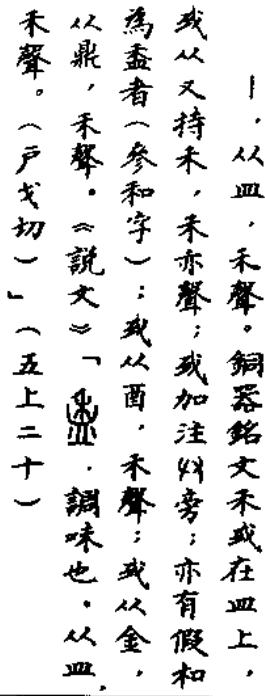 丨，从皿，禾聲。銅器銘文禾或在皿上，
或从又持禾，禾亦聲；或加注㚔旁；亦有假和
為盉者（參和字）；或从酉，禾聲；或从金，
从鼎，禾聲。《說文》「盉，調味也。从皿，
禾聲。（戶戈切）」（五上二十）